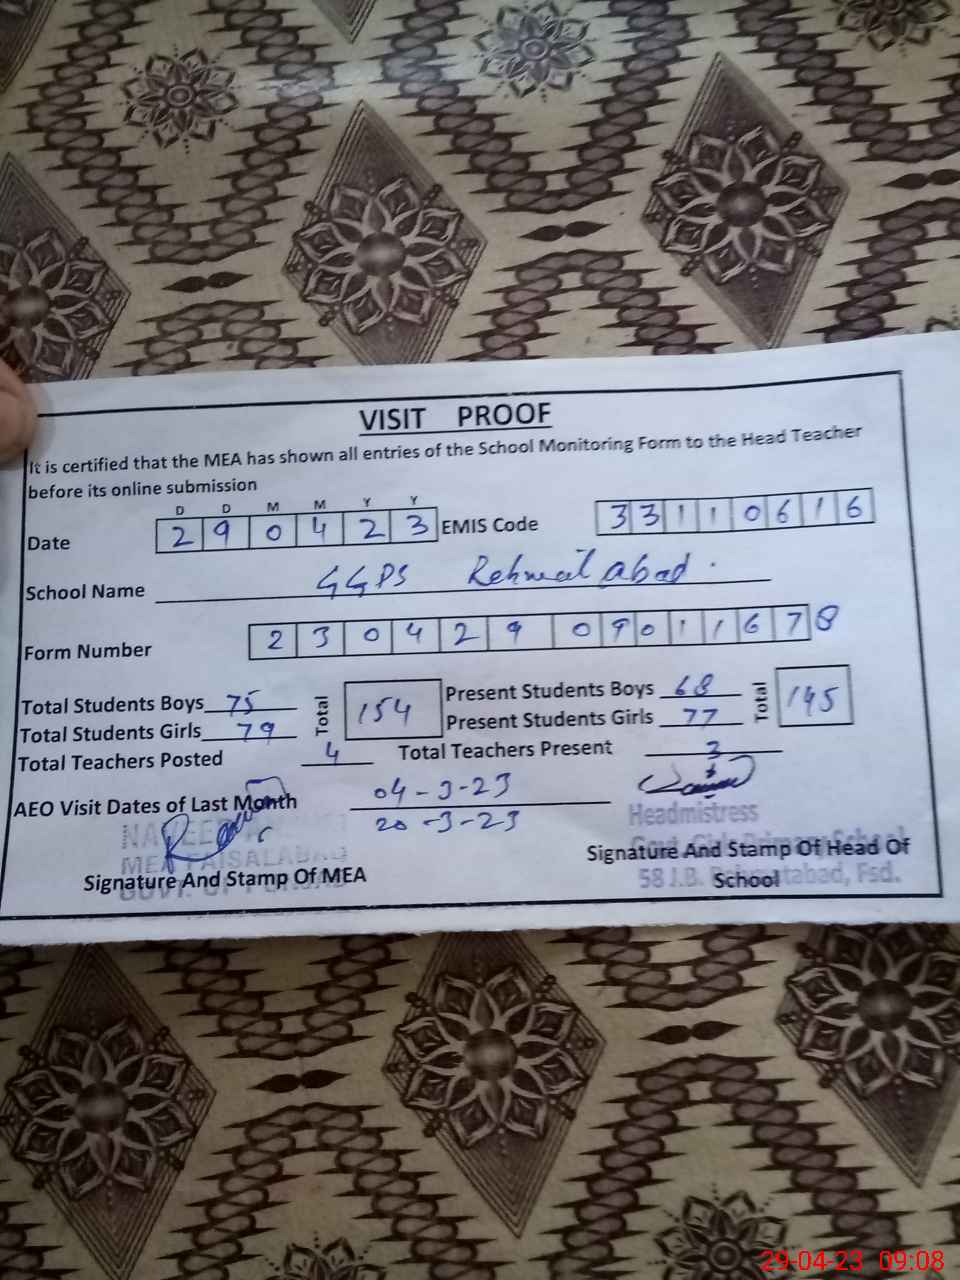 VISIT PROOF
It is certified that the MEA has shown all entries of the School Monitoring Form to the Head Teacher
before its online submission
D D M M Y Y
Date 2 9 0 4 2 3 EMIS Code 3 3 1 1 0 6 1 6
School Name GGPS Rehmat abad.
Form Number 2 3 0 4 2 9 0 9 0 1 1 6 7 8
Total Students Boys 75 Total 154 Present Students Boys 68 Total 145
Total Students Girls 79 Present Students Girls 77
Total Teachers Posted 4 Total Teachers Present 3
AEO Visit Dates of Last Month 04-3-23
20-3-23
Headmistress
Govt. Girls Primary School
58 J.B. abad, Fsd.
MEA FAISALABAD
GOVT. OF
Signature And Stamp Of MEA
Signature And Stamp Of Head Of
School
29-04-23 09:08